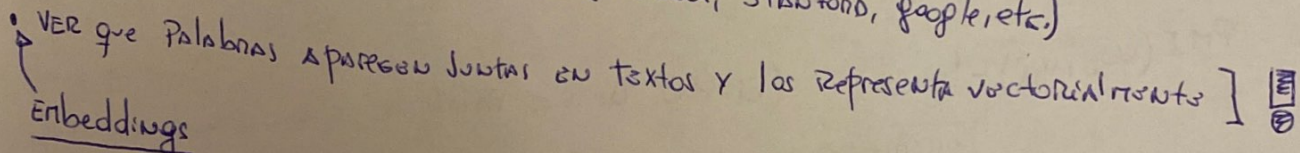 Stanford, google, etc.)
• Ver que Palabras aparecen Juntas en textos y las Representa vectorialmente ] !
Embeddings